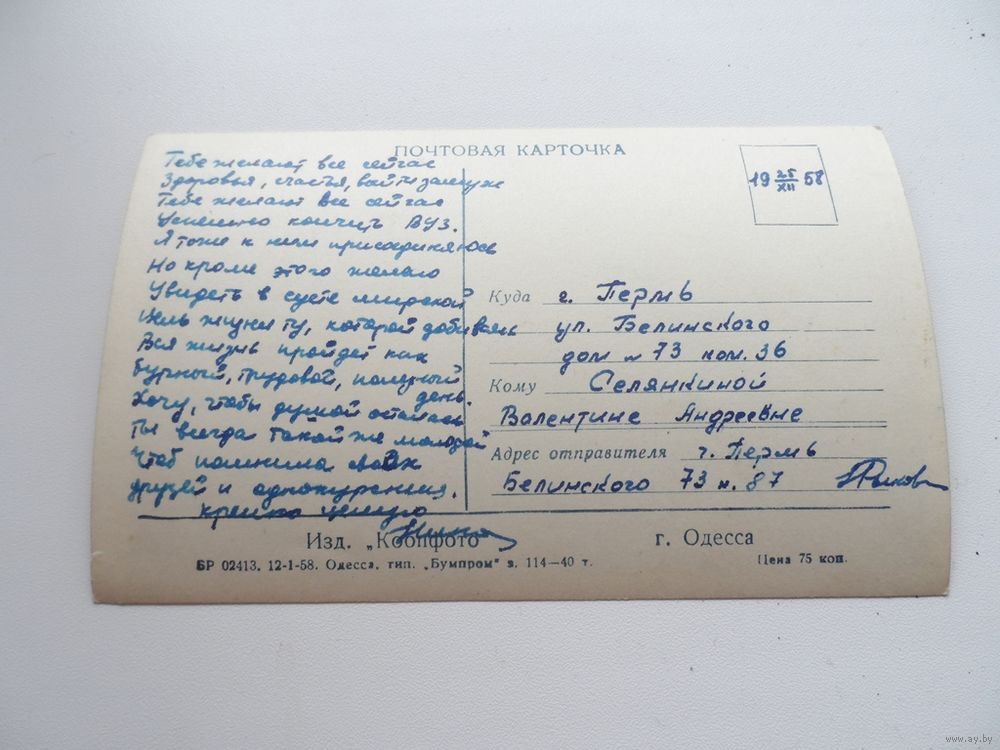 ПОЧТОВАЯ КАРТОЧКА
Тебе желают все сейчас
Здоровья, счастья, выйти замуж
Тебе желают все сейчас
Успешно кончить ВУЗ.
Я тоже к ним присоединяюсь
Но кроме этого желаю
Увидеть в суете мирской
Цель жизни ту, которой добиваясь
Вся жизнь пройдет как
бурный, трудовой, полезный
день.
Хочу, чтобы душой осталась
Ты всегда такой же молодой
Чтоб помнила своих
друзей и однокурсниц.
крепко целую
Нина
19 25/XII 58
Куда г. Пермь
ул. Белинского
дом № 73 ком. 36
Кому Селянкиной
Валентине Андреевне
Адрес отправителя г. Пермь
Белинского 73 к. 87
Изд. „Коопфото" г. Одесса
БР 02413. 12-1-58. Одесса, тип. „Бумпром" з. 114—40 т. Цена 75 коп.
www.ay.by